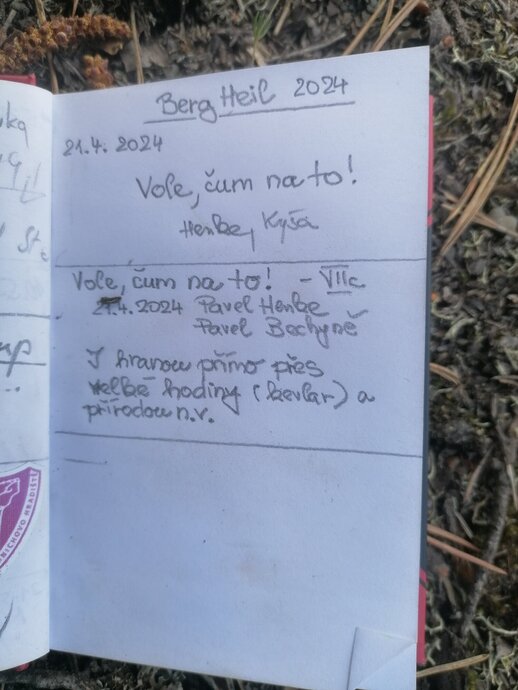 Berg Heil 2024
21.4. 2024
Vole, čum na to!
Henke, Kyša
Vole, čum na to! - VIIc
21.4.2024 Pavel Henke
Pavel Bechyně
J hranou přímo přes
velké hodiny (kevlar) a
přírodou n.v.
NICHOVO HRADIŠTĚ